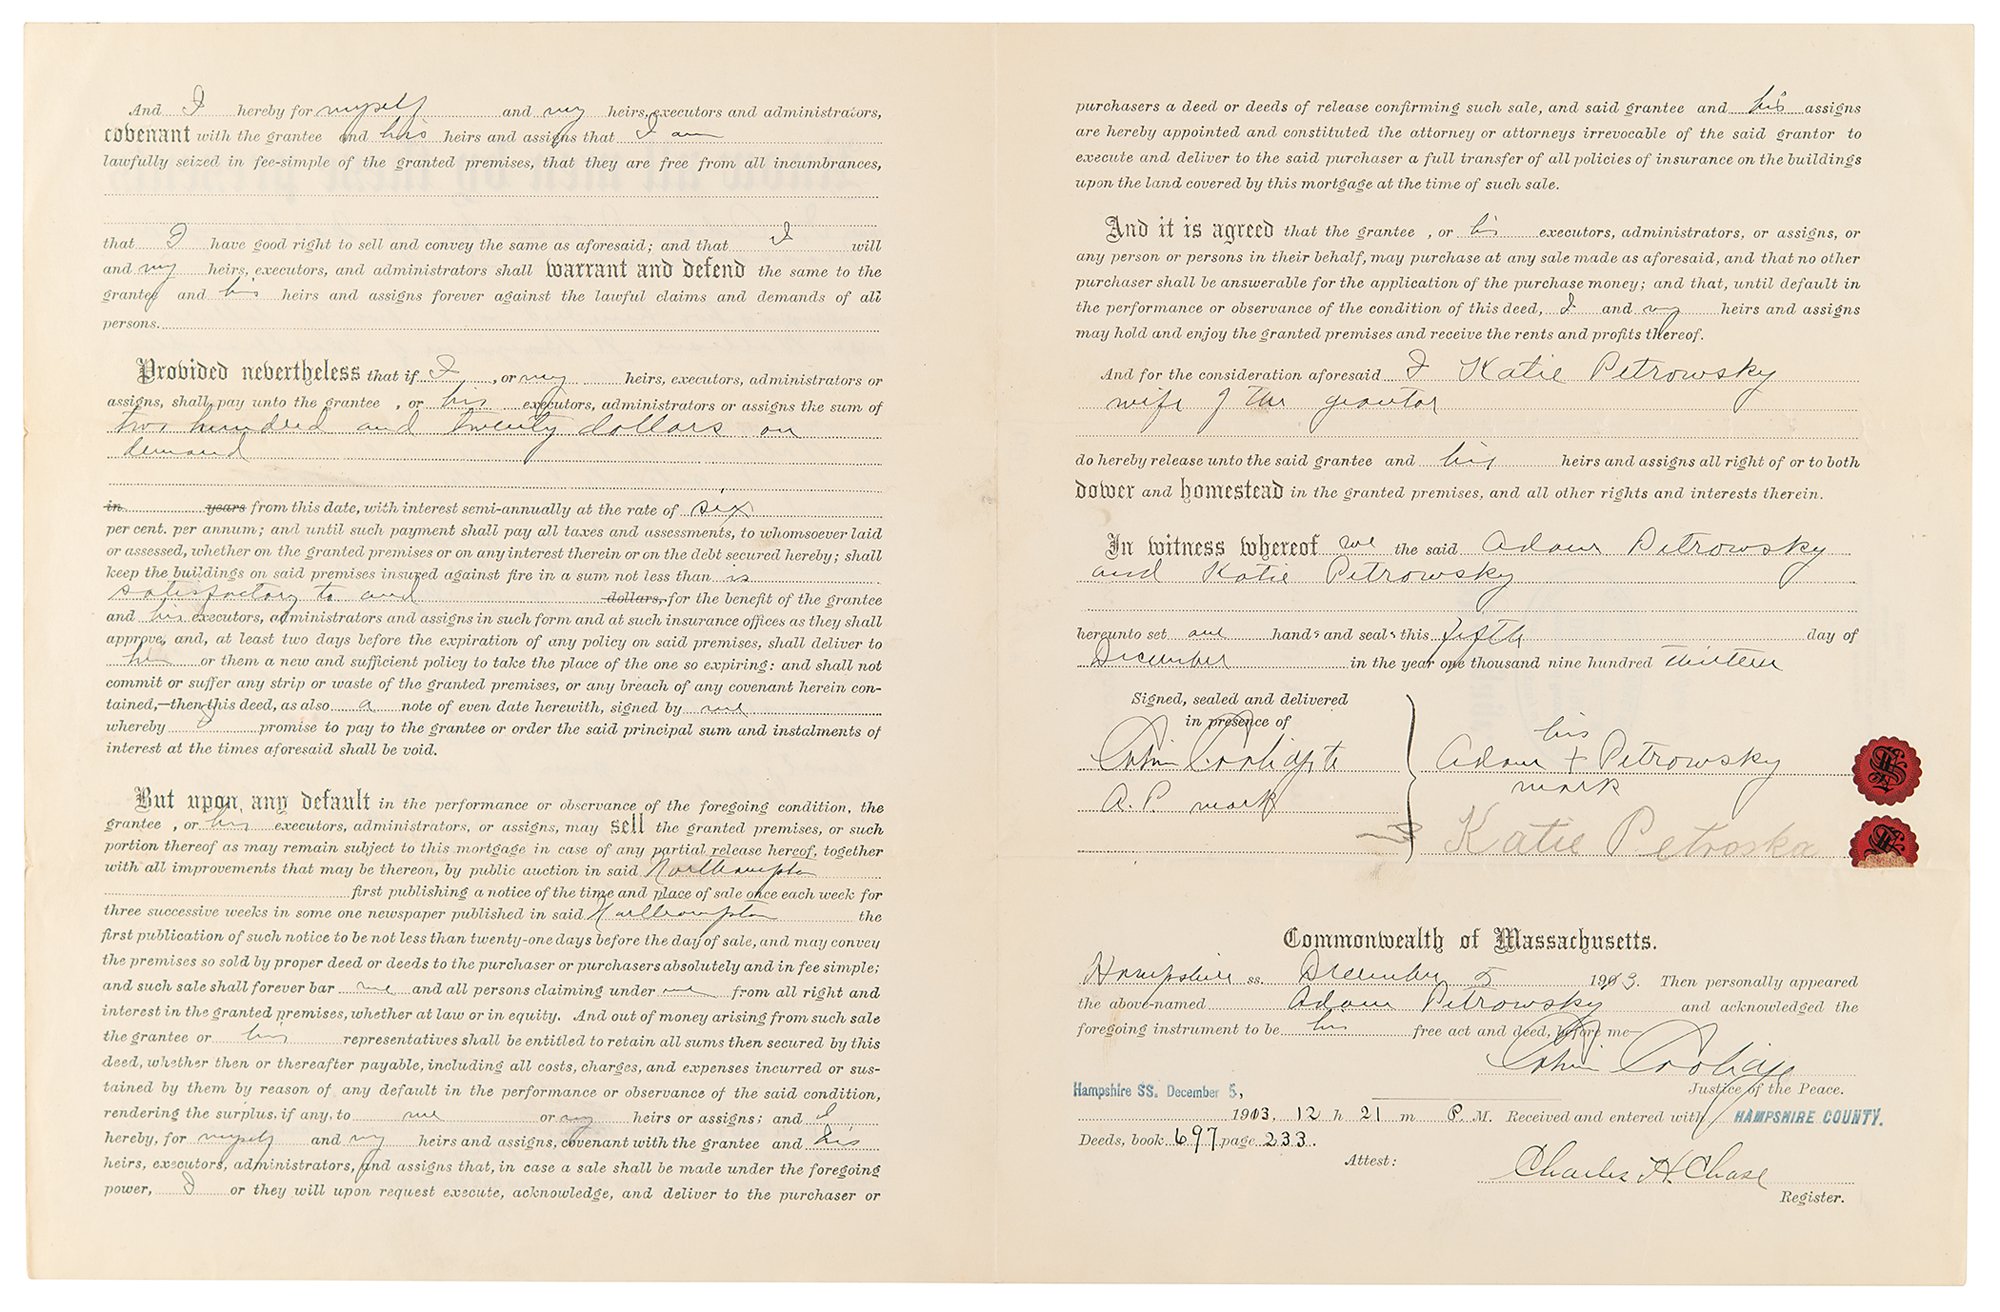 And I hereby for myself and my heirs, executors and administrators,
covenant with the grantee and his heirs and assigns that I am
lawfully seized in fee-simple of the granted premises, that they are free from all incumbrances,
that I have good right to sell and convey the same as aforesaid; and that I will
and my heirs, executors, and administrators shall warrant and defend the same to the
grantee and his heirs and assigns forever against the lawful claims and demands of all
persons.
Provided nevertheless that if I, or my heirs, executors, administrators or
assigns, shall pay unto the grantee, or his executors, administrators or assigns the sum of
two hundred and twenty dollars on
demand
in years from this date, with interest semi-annually at the rate of six
per cent. per annum; and until such payment shall pay all taxes and assessments, to whomsoever laid
or assessed, whether on the granted premises or on any interest therein or on the debt secured hereby; shall
keep the buildings on said premises insured against fire in a sum not less than is
satisfactory to and dollars, for the benefit of the grantee
and his executors, administrators and assigns in such form and at such insurance offices as they shall
approve, and, at least two days before the expiration of any policy on said premises, shall deliver to
him or them a new and sufficient policy to take the place of the one so expiring: and shall not
commit or suffer any strip or waste of the granted premises, or any breach of any covenant herein con-
tained,—then this deed, as also a note of even date herewith, signed by me
whereby I promise to pay to the grantee or order the said principal sum and instalments of
interest at the times aforesaid shall be void.
But upon any default in the performance or observance of the foregoing condition, the
grantee, or his executors, administrators, or assigns, may sell the granted premises, or such
portion thereof as may remain subject to this mortgage in case of any partial release hereof, together
with all improvements that may be thereon, by public auction in said Northampton
first publishing a notice of the time and place of sale once each week for
three successive weeks in some one newspaper published in said Northampton the
first publication of such notice to be not less than twenty-one days before the day of sale, and may convey
the premises so sold by proper deed or deeds to the purchaser or purchasers absolutely and in fee simple;
and such sale shall forever bar me and all persons claiming under me from all right and
interest in the granted premises, whether at law or in equity. And out of money arising from such sale
the grantee or his representatives shall be entitled to retain all sums then secured by this
deed, whether then or thereafter payable, including all costs, charges, and expenses incurred or sus-
tained by them by reason of any default in the performance or observance of the said condition,
rendering the surplus, if any, to me or my heirs or assigns; and I
hereby, for myself and my heirs and assigns, covenant with the grantee and his
heirs, executors, administrators, and assigns that, in case a sale shall be made under the foregoing
power, I or they will upon request execute, acknowledge, and deliver to the purchaser or
purchasers a deed or deeds of release confirming such sale, and said grantee and his assigns
are hereby appointed and constituted the attorney or attorneys irrevocable of the said grantor to
execute and deliver to the said purchaser a full transfer of all policies of insurance on the buildings
upon the land covered by this mortgage at the time of such sale.
And it is agreed that the grantee, or his executors, administrators, or assigns, or
any person or persons in their behalf, may purchase at any sale made as aforesaid, and that no other
purchaser shall be answerable for the application of the purchase money; and that, until default in
the performance or observance of the condition of this deed, I and my heirs and assigns
may hold and enjoy the granted premises and receive the rents and profits thereof.
And for the consideration aforesaid I Katie Petrowsky
wife of the grantor
do hereby release unto the said grantee and his heirs and assigns all right of or to both
dower and homestead in the granted premises, and all other rights and interests therein.
In witness whereof we the said Adam Petrowsky
and Katie Petrowsky
hereunto set our hands and seals this fifth day of
December in the year one thousand nine hundred thirteen
Signed, sealed and delivered
in presence of
Calvin Coolidge to
A.P. mark
his
Adam + Petrowsky
mark
Katie Petroska
Commonwealth of Massachusetts.
Hampshire ss. December 5 1913. Then personally appeared
the above-named Adam Petrowsky and acknowledged the
foregoing instrument to be his free act and deed, before me
Calvin Coolidge
Justice of the Peace.
Hampshire SS. December 5,
1913, 12 h 21 m P.M. Received and entered with HAMPSHIRE COUNTY.
Deeds, book 697 page 233.
Attest:
Charles H. Chase
Register.